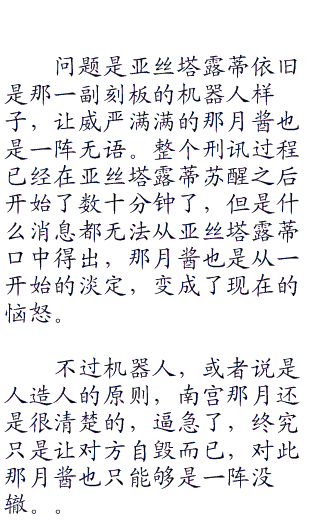 问题是亚丝塔露蒂依旧
是那一副刻板的机器人样
子，让威严满满的那月酱也
是一阵无语。整个刑讯过程
已经在亚丝塔露蒂苏醒之后
开始了数十分钟了，但是什
么消息都无法从亚丝塔露蒂
口中得出，那月酱也是从一
开始的淡定，变成了现在的
恼怒。
不过机器人，或者说是
人造人的原则，南宫那月还
是很清楚的，逼急了，终究
只是让对方自毁而已，对此
那月酱也只能够是一阵没
辙。。